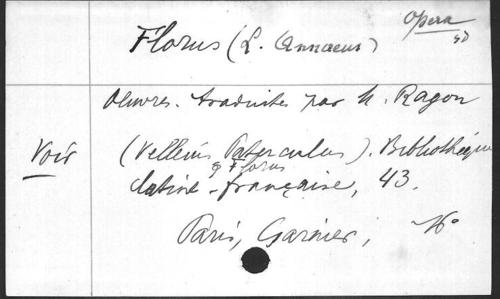 Opera
Florus (L. Annaeus)
Oeuvres. traduites par M. Ragon
Voir (Velleius Paterculus). Bibliothèque
& Florus
latine-française, 43.
Paris, Garnier,